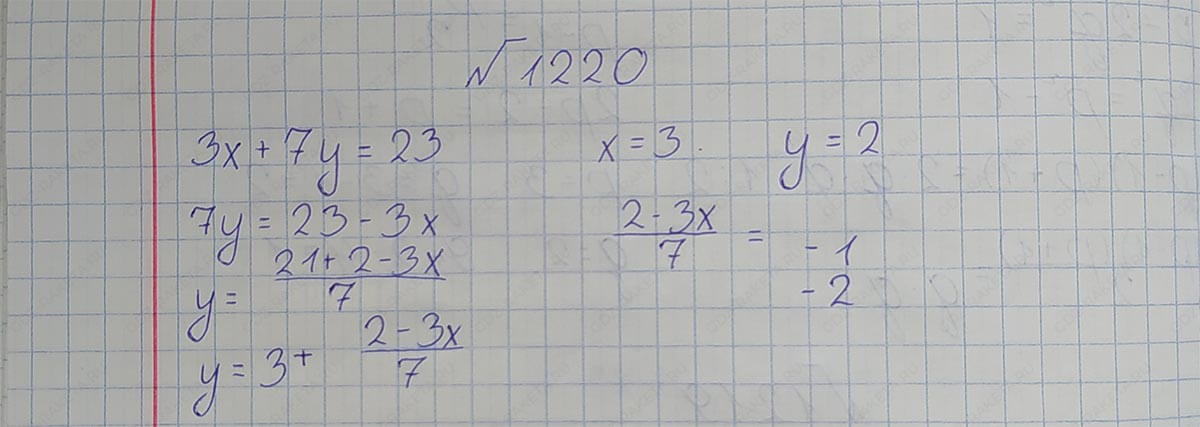 №1220
3x + 7y = 23
7y = 23 - 3x
y = \frac{21 + 2 - 3x}{7}
y = 3 + \frac{2 - 3x}{7}
x = 3. y = 2
\frac{2 - 3x}{7} = - 1
- 2